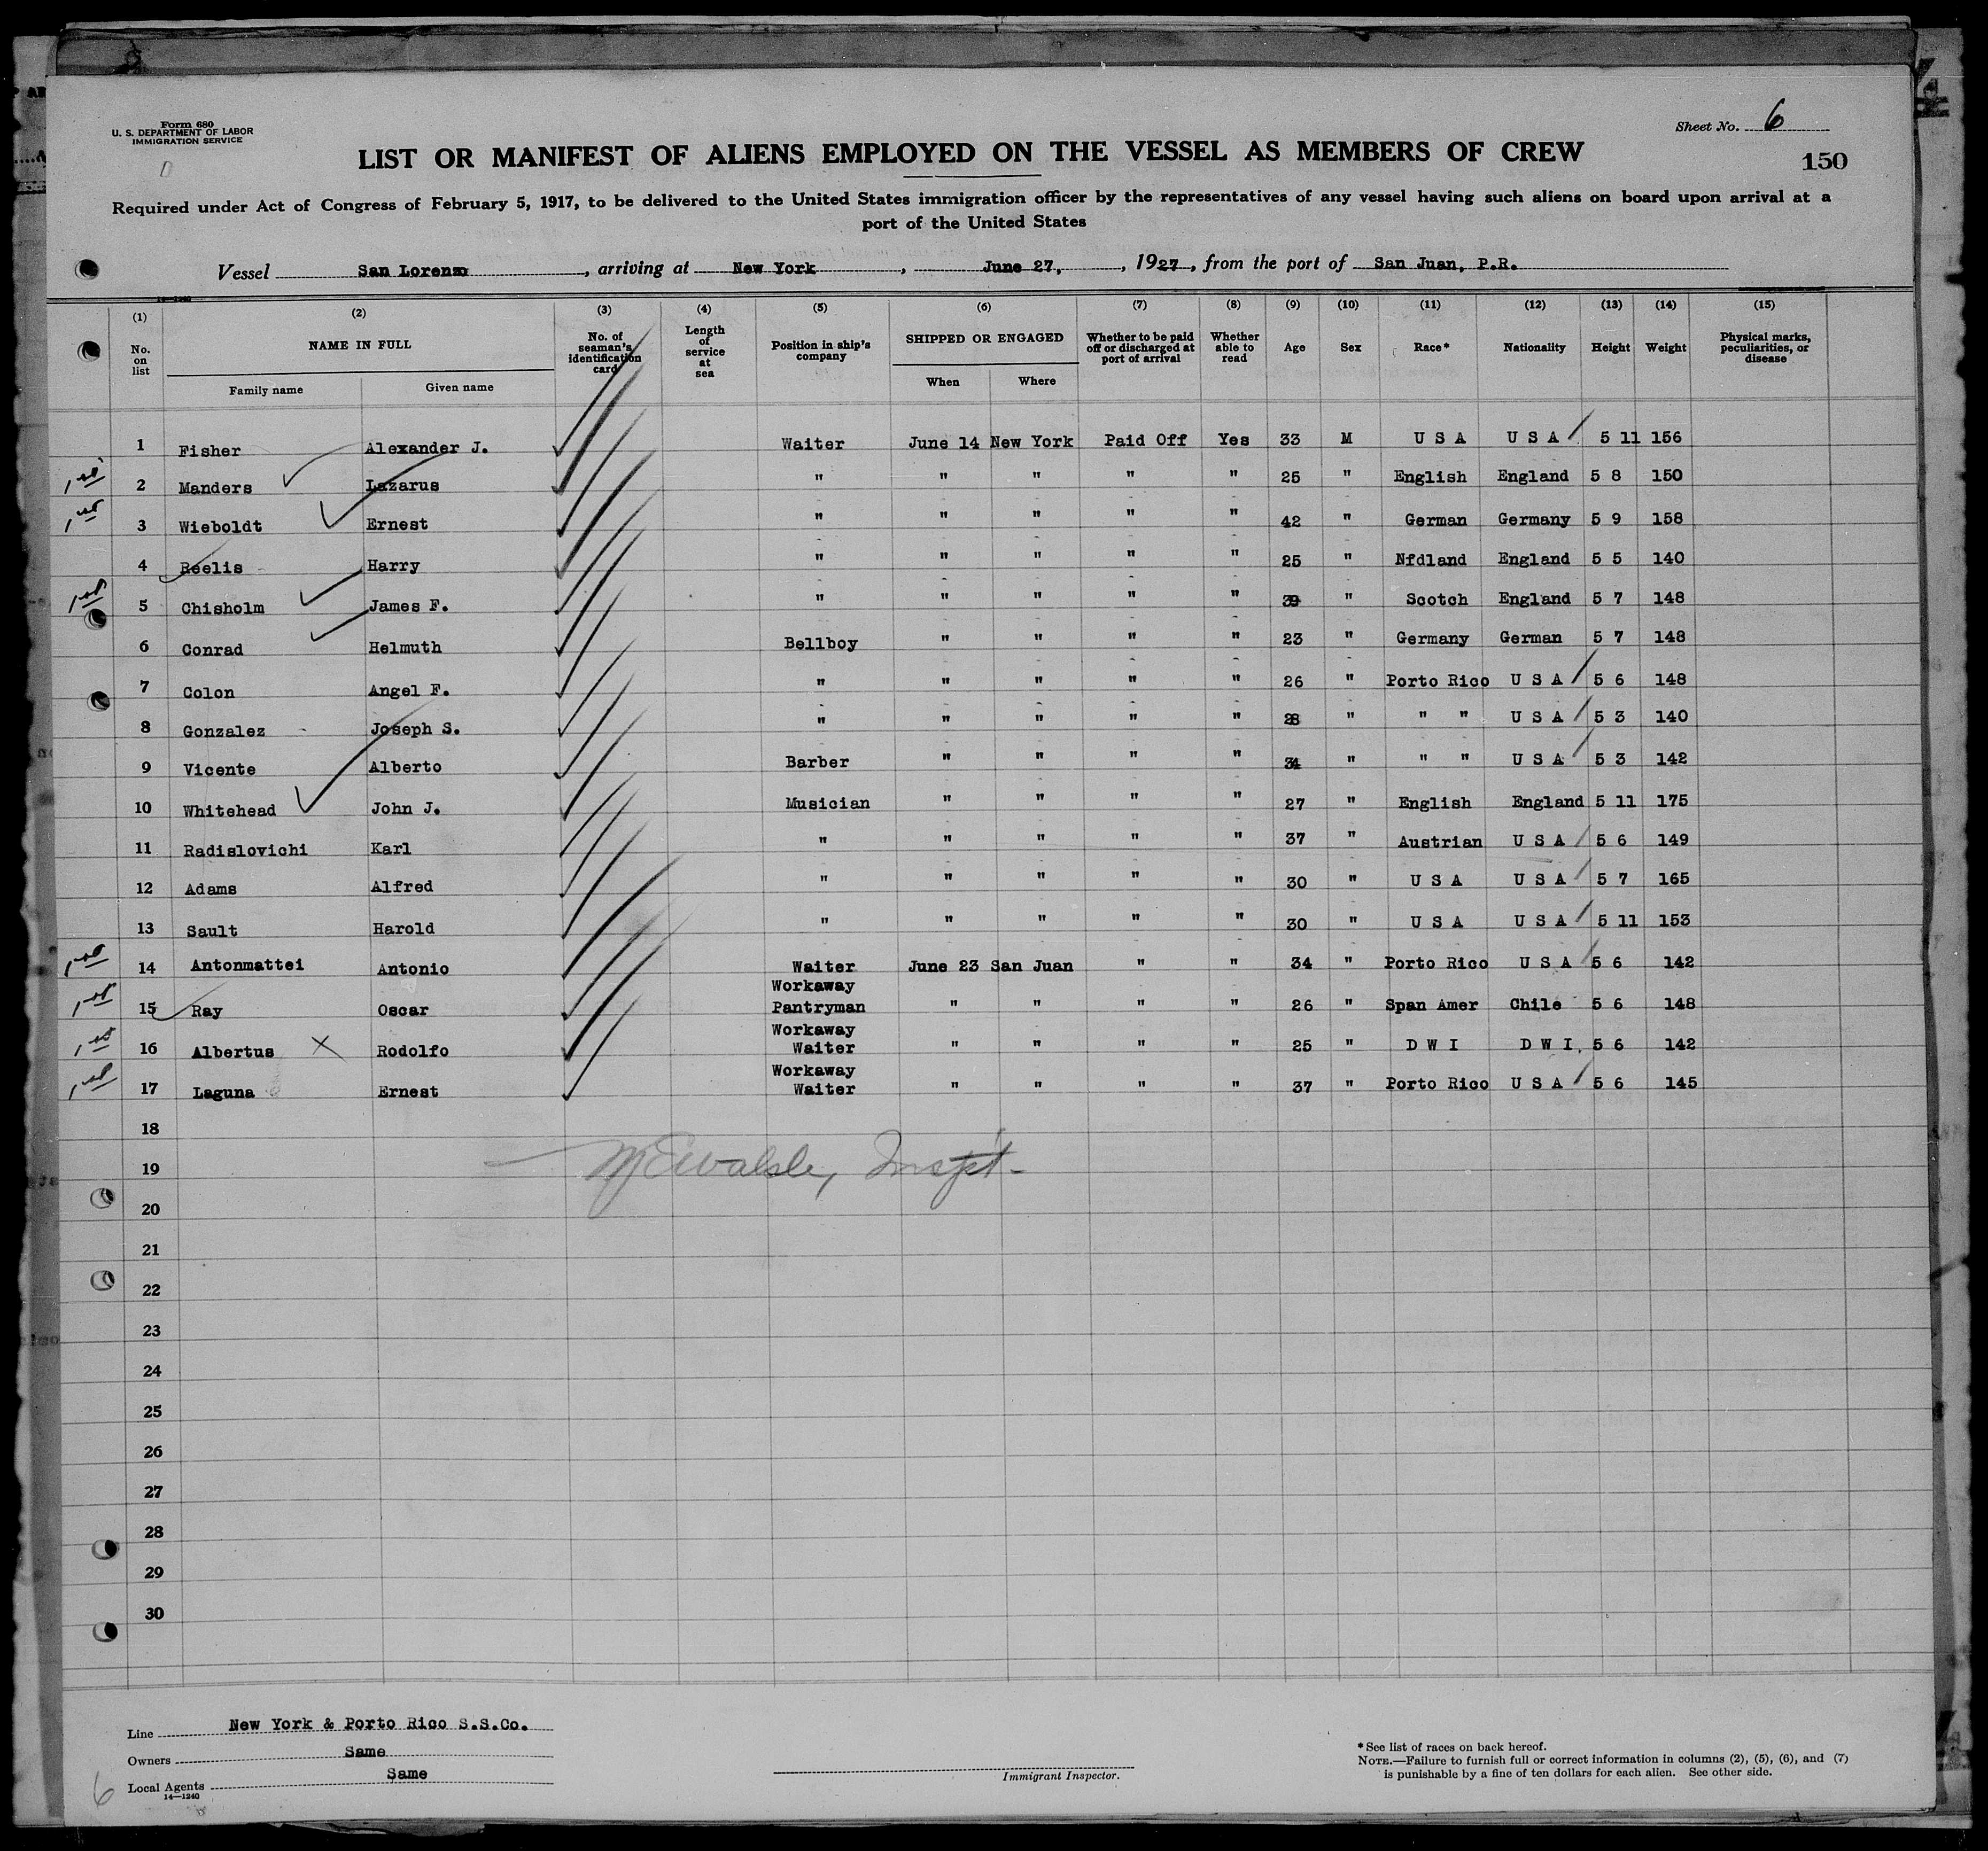 Form 680
U. S. DEPARTMENT OF LABOR
IMMIGRATION SERVICE
Sheet No. 6
LIST OR MANIFEST OF ALIENS EMPLOYED ON THE VESSEL AS MEMBERS OF CREW
150
Required under Act of Congress of February 5, 1917, to be delivered to the United States immigration officer by the representatives of any vessel having such aliens on board upon arrival at a
port of the United States
Vessel San Lorenzo, arriving at New York, June 27, 1927, from the port of San Juan, P.R.
(1) No. on list (2) NAME IN FULL Family name Given name (3) No. of seaman's identification card (4) Length of service at sea (5) Position in ship's company (6) SHIPPED OR ENGAGED When Where (7) Whether to be paid off or discharged at port of arrival (8) Whether able to read (9) Age (10) Sex (11) Race* (12) Nationality (13) Height (14) Weight (15) Physical marks, peculiarities, or disease
1 Fisher Alexander J. Waiter June 14 New York Paid Off Yes 33 M U S A U S A 5 11 156
1st 2 Manders Lazarus " " " " " 25 " English England 5 8 150
1st 3 Wieboldt Ernest " " " " " 42 " German Germany 5 9 158
4 Reelis Harry " " " " " 25 " Nfdland England 5 5 140
1st 5 Chisholm James F. " " " " " 39 " Scotch England 5 7 148
6 Conrad Helmuth Bellboy " " " " 23 " Germany German 5 7 148
7 Colon Angel F. " " " " " 26 " Porto Rico U S A 5 6 148
8 Gonzalez Joseph S. " " " " " 28 " " " U S A 5 3 140
9 Vicente Alberto Barber " " " " 34 " " " U S A 5 3 142
10 Whitehead John J. Musician " " " " 27 " English England 5 11 175
11 Radislovichi Karl " " " " " 37 " Austrian U S A 5 6 149
12 Adams Alfred " " " " " 30 " U S A U S A 5 7 165
13 Sault Harold " " " " " 30 " U S A U S A 5 11 153
1st 14 Antonmattei Antonio Waiter June 23 San Juan " " 34 " Porto Rico U S A 5 6 142
1st 15 Ray Oscar Workaway Pantryman " " " " 26 " Span Amer Chile 5 6 148
1st 16 Albertus X Rodolfo Workaway Waiter " " " " 25 " D W I D W I. 5 6 142
1st 17 Laguna Ernest Workaway Waiter " " " " 37 " Porto Rico U S A 5 6 145
18
19
20
21
22
23
24
25
26
27
28
29
30
Line New York & Porto Rico S.S.Co.
Owners Same
Local Agents Same
14—1240
6
Immigrant Inspector.
*See list of races on back hereof.
NOTE.—Failure to furnish full or correct information in columns (2), (5), (6), and (7)
is punishable by a fine of ten dollars for each alien. See other side.